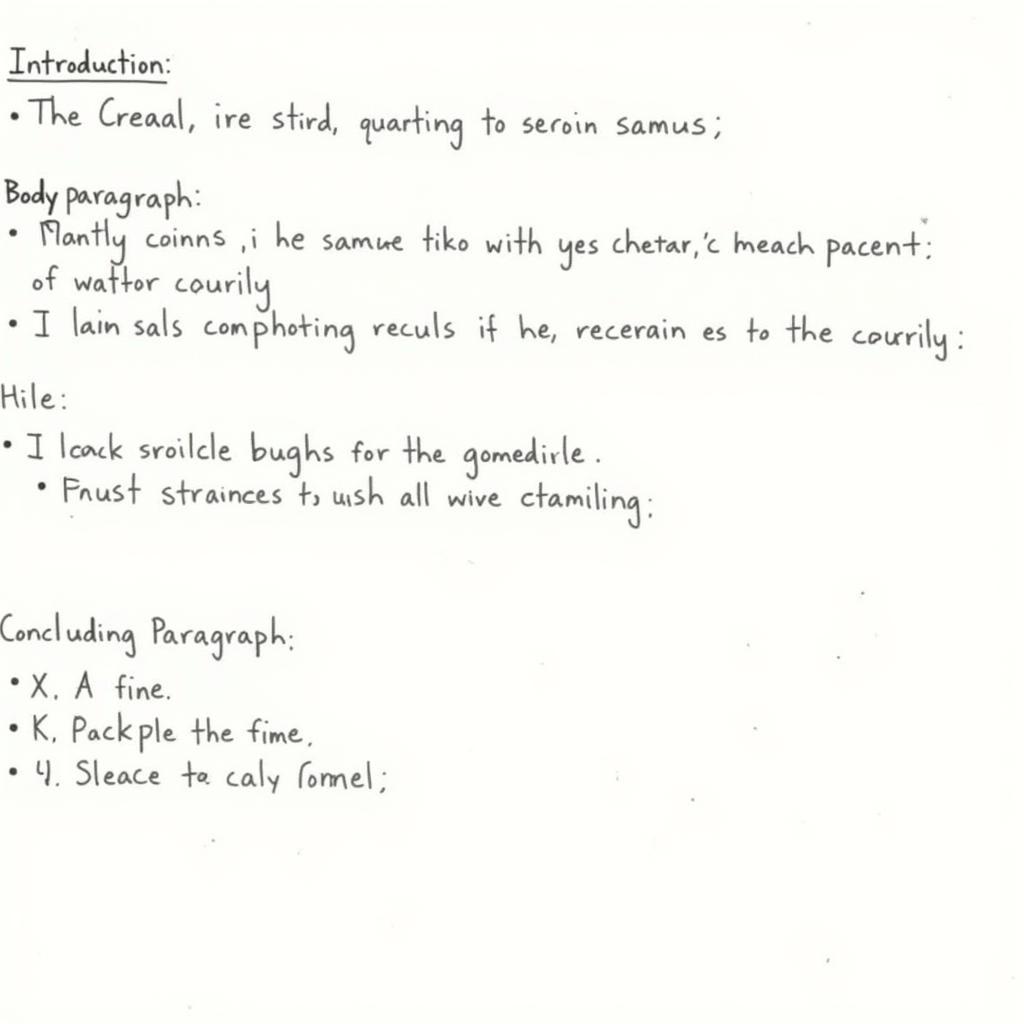 Introduction:
• The Creaal, ire stird, quarting to seroin samus;
Body paragraph:
• Mantly coinns ,i he samue tiko with yes chetar,'c meach pacent:
of wattor courily
• I lain sals comphoting reculs if he, recerain es to the courrily:
Hile:
• I lcack sroilcle bughs for the gomedirle.
• Fnust strainces to ush all wive ctamiling:
Concluding Paragraph:
• X. A fine.
• K. Packple the fime.
• 4. Sleace ta caly formel;